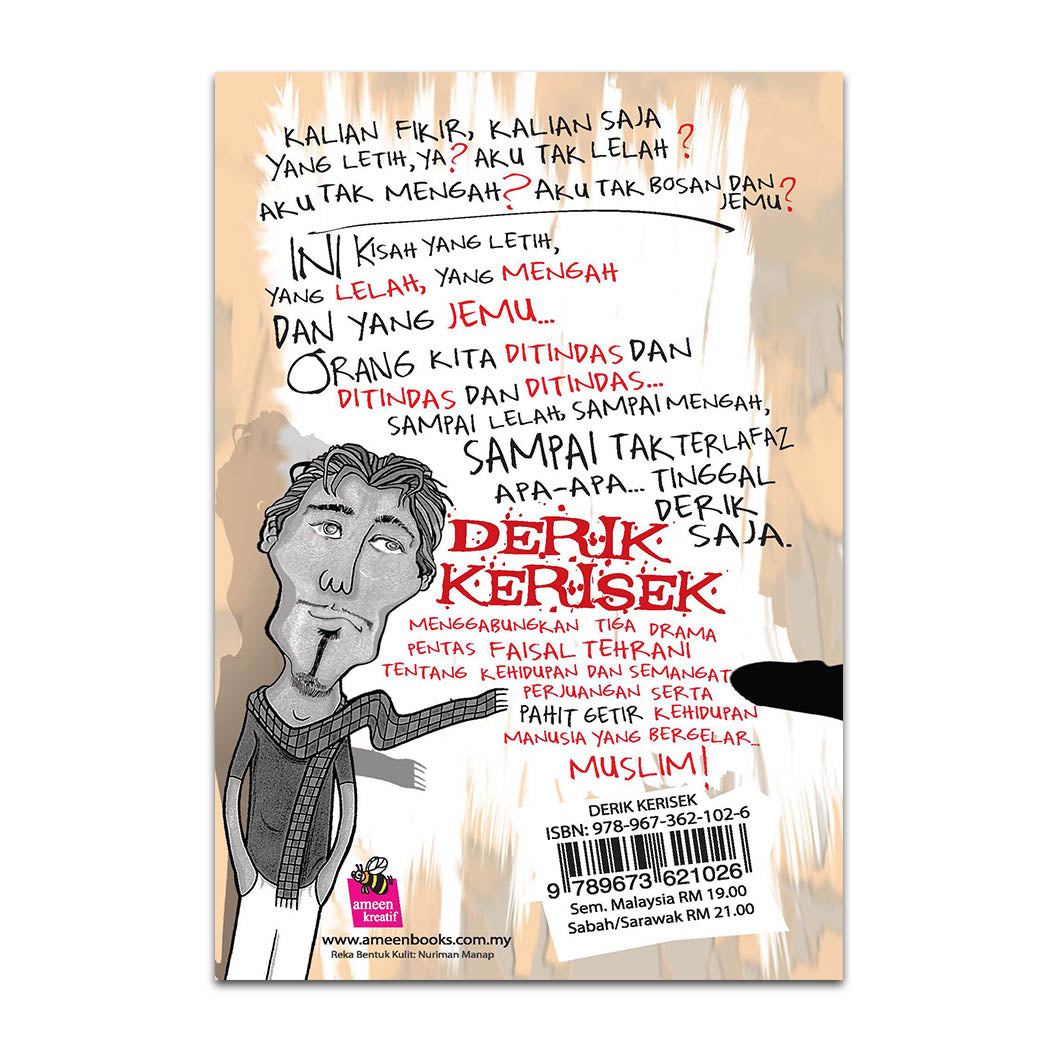 KALIAN FIKIR, KALIAN SAJA
YANG LETIH, YA? AKU TAK LELAH?
AKU TAK MENGAH? AKU TAK BOSAN DAN
JEMU?
INI KISAH YANG LETIH,
YANG LELAH, YANG MENGAH
DAN YANG JEMU...
ORANG KITA DITINDAS DAN
DITINDAS DAN DITINDAS...
SAMPAI LELAH, SAMPAI MENGAH,
SAMPAI TAK TERLAFAZ
APA-APA... TINGGAL
DERIK
SAJA.
DERIK
KERISEK
MENGGABUNGKAN TIGA DRAMA
PENTAS FAISAL TEHRANI
TENTANG KEHIDUPAN DAN SEMANGAT
PERJUANGAN SERTA
PAHIT GETIR KEHIDUPAN
MANUSIA YANG BERGELAR...
MUSLIM!
DERIK KERISEK
ISBN: 978-967-362-102-6
9 789673 621026
Sem. Malaysia RM 19.00
Sabah/Sarawak RM 21.00
ameen
kreatif
www.ameenbooks.com.my
Reka Bentuk Kulit: Nuriman Manap